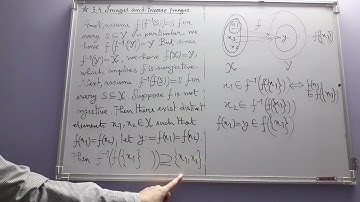 Q 3.4 Images and Inverse Images
First, assume f(f⁻¹(S))=S for
every S⊆Y. In particular, we
have f(f⁻¹(Y))=Y. But since
f⁻¹(Y)=X, we have f(X)=Y,
which implies f is surjective.
Next, assume f⁻¹(f(S))=S for
every S⊆X. Suppose f is not
injective. Then there exist distinct
elements x₁, x₂∈X such that
f(x₁)=f(x₂). Let y:=f(x₁)=f(x₂).
Then f⁻¹(f({x₁} ))⊇{x₁,x₂}
f
x₁
x₂
y
f(X)
X
Y
x₁∈f⁻¹(f({x₁}))⇔f(x₁)∈
x₂∈f⁻¹(f({x₁}))
f(x₁)=y∈f({x₁})